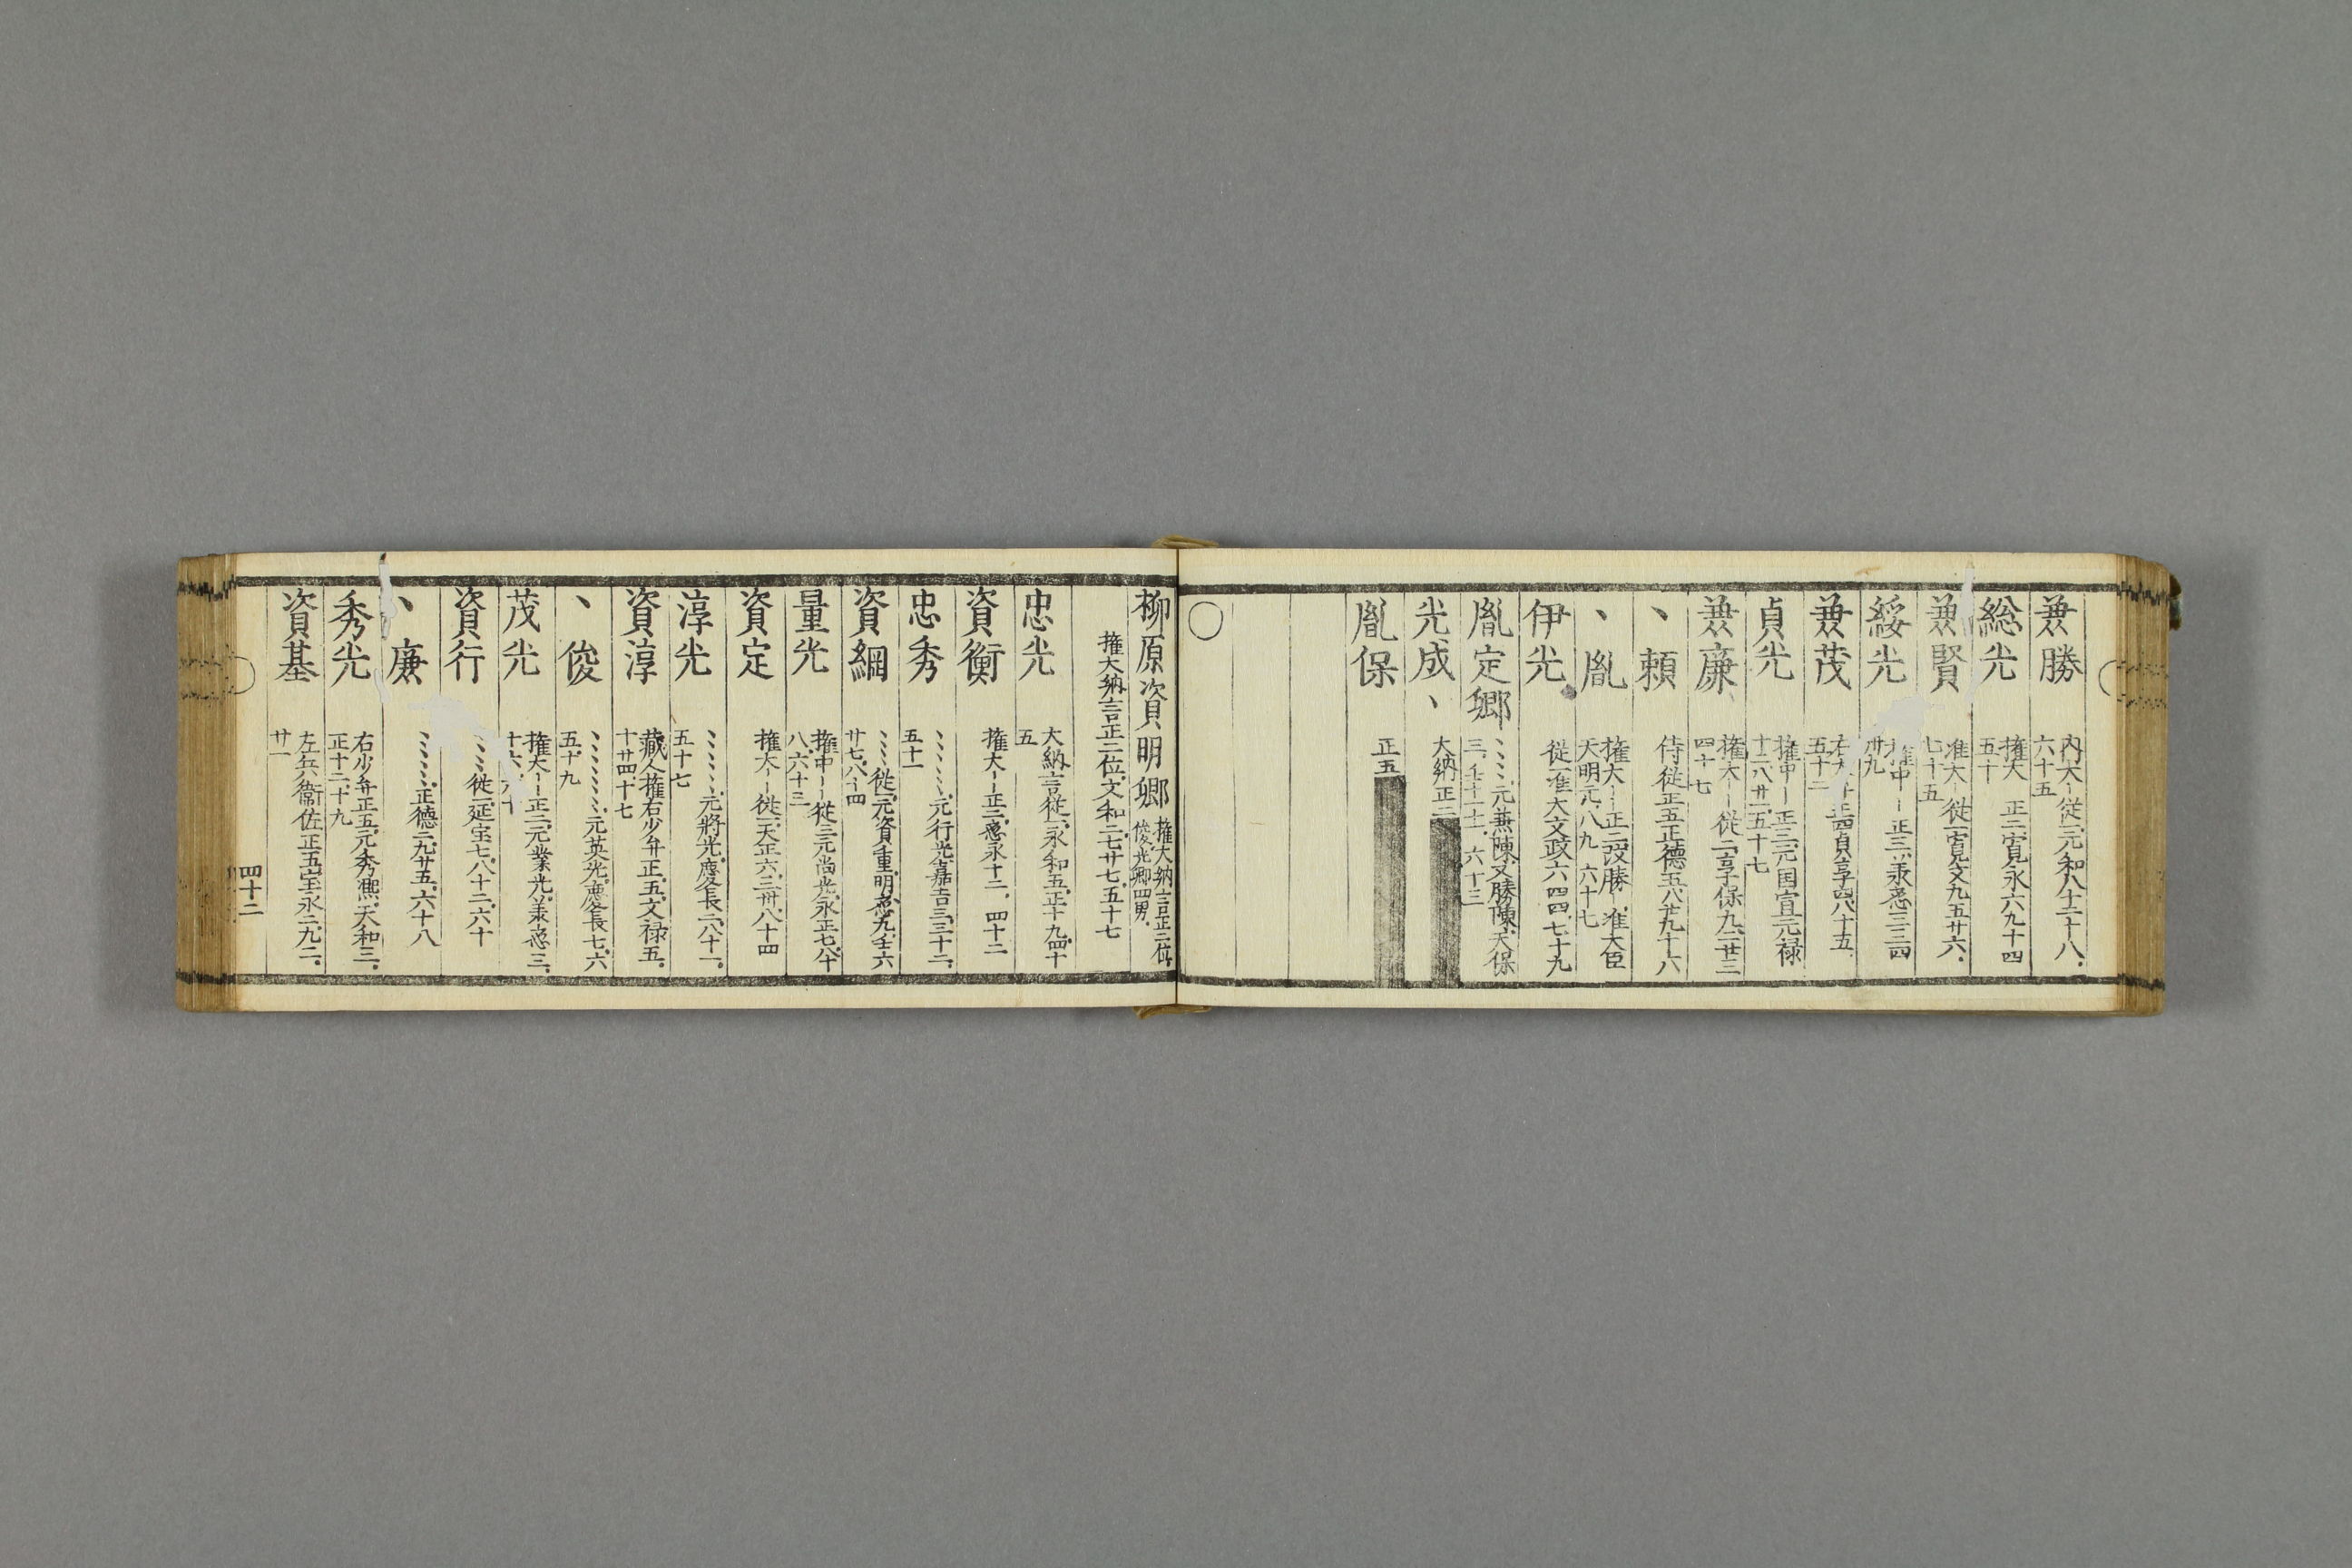 兼勝
内大〡従一元和八十一十八
六十五
総光
権大 正二寛永六九十四
五十
兼賢
准大〡従一寛文九五廿六
七十五
綏光
権中〡正三承応三三四
卅九
兼茂
正四貞享四八十五
五十二
貞光
権中〡正三元国宣元禄
十二八廿一五十七
兼廉
権大〡従二享保九二廿三
四十七
丶頼
侍従正五正徳五八廿九十六
丶胤
権大〡正二改勝〡准大臣
天明元八九 六十七
伊光
従一准大文政六四四七十九
胤定郷
丶丶丶丶元兼陳又勝陳天保
三壬十一十一 六十三
光成丶
大納正二
胤保
正五
柳原資明郷
権大納言正二位
俊光卿四男
権大納言正二位文和二七廿七五十七
忠光
大納言従一永和五正十九四十
五
資衡
権大〡正二応永十二 四十二
忠秀
丶丶丶丶元行光嘉吉三三十二
五十一
資綱
丶丶丶従一元資重明応九壬六
廿七八十四
量光
権中〡従二元尚光永正七八十
八六十三
資定
権大〡従一天正六三卅八十四
淳光
丶丶丶丶丶元将光慶長二八十一
五十七
資淳
蔵人権右少弁正五文禄五
十廿四十七
丶俊
丶丶丶丶丶丶元英光慶長七六
五十九
茂光
権大〡正二元業光承応三
資行
丶丶丶従一延宝七八十二六十
丶廉
丶丶丶丶正徳二九廿五六十八
秀光
右少弁正五元秀熙天和三
正十二十九
資基
左兵衛佐正五宝永二九二
廿一
四十二